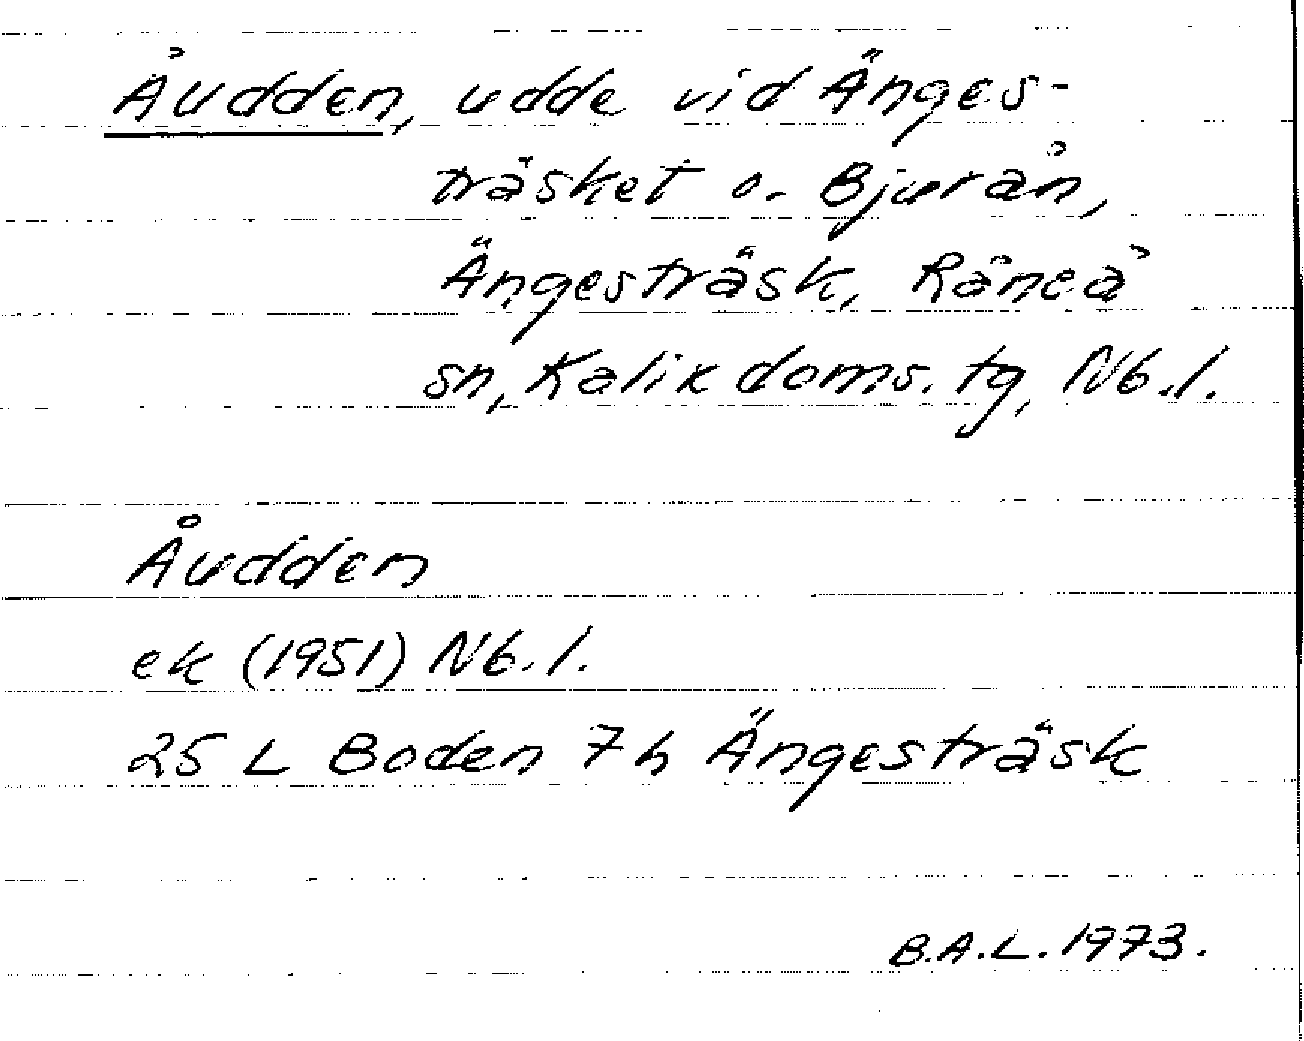 Åudden, udde vid Änges-
träsket o. Bjurån,
Ängesträsk, Råneå
sn, Kalix doms. tg, Nb. l.
Åudden
ek (1951) Nb. l.
25 L Boden 7 h Ängesträsk
B.A.L. 1973.